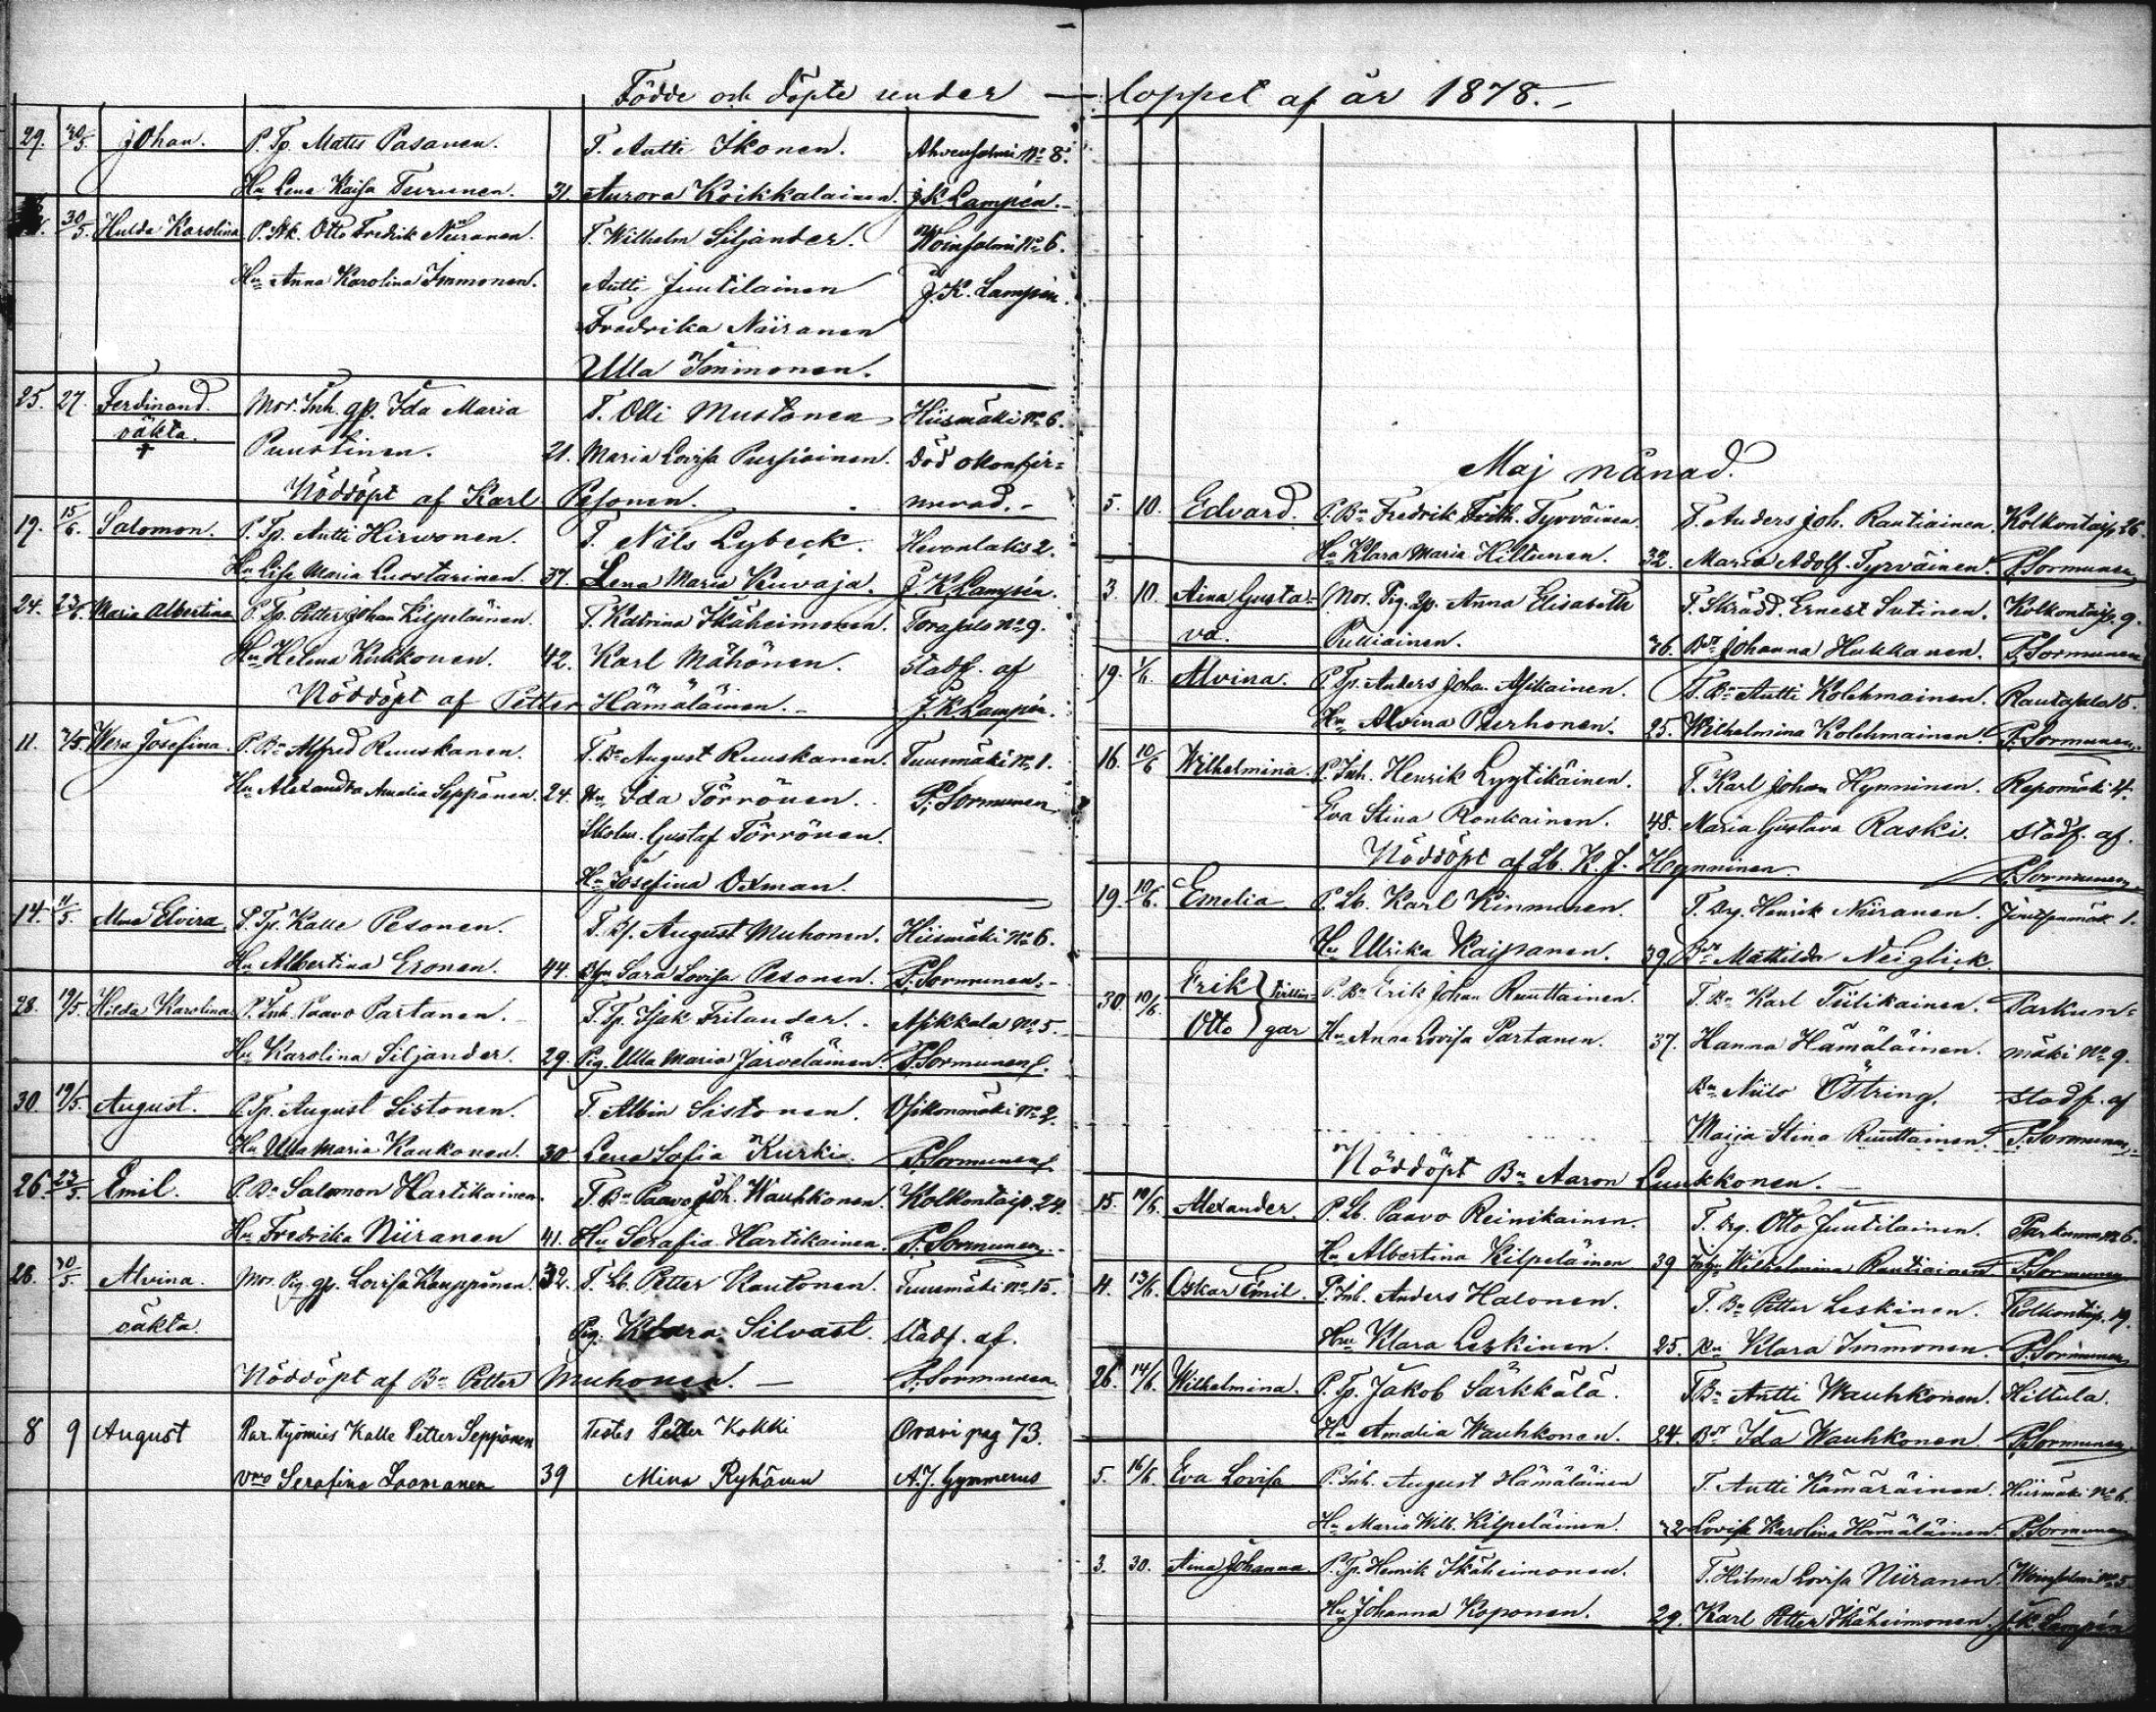 Födde och döpte under loppet af år 1878.
29. 30/5. Johan. P. Tp. Matts Pasanen. T. Antti Ikonen. Ahvensalmi No 8.
Hu Lena Kaisa Turunen. 31. Aurora Koikkalainen. J. K. Lampén.
30/5. Hulda Karolina P. Otto Fredrik Niiranen. T. Wilhelm Siljander. No 6.
Hu Anna Karolina Immonen. Antti Juutilainen J. K. Lampén.
Fredrika Niiranen
Ulla Immonen.
25. 27. Ferdinand. Mor. Inh. gp. Ida Maria T. Olli Mustonen Hiismäki No 6.
oäkta.
+ Puustinen. 21. Maria Lovisa Pursiainen. död okonfir=
Nöddöpt af Karl Pesonen. merad.
19. 15/6. Salomon. P. Tp. Antti Hirvonen. T. Nils Lybeck. Hevonlaks 2.
Hu Lisa Maria Luostarinen. 37. Lena Maria Kuvaja. J. K. Lampén.
24. 23/6. Maria Albertina P. Tp. Petter Johan Kilpeläinen. T. Katrina Ikäheimonen. Torasalo No 9.
Hu Helena Kukkonen. 42. Karl Mähönen. stadf. af
Nöddöpt af Petter Hämäläinen. J. K. Lampén.
11. Wera Josefina. P. Bn Alfred Ruuskanen. T. Bn August Ruuskanen. Tuusmäki No 1.
Hu Alexandra Amalia Seppänen. 24. Hu Ida Törrönen. P. Sormunen
Gustaf Törrönen.
Hu Josefina Oxman.
14. 11/5. Alma Elvira P. Tp. Kalle Pesonen. T. August Muhonen. Hiismäki No 6.
Hu Albertina Eronen. 44. Sara Lovisa Pesonen. P. Sormunen.
28. 19/5. Hilda Karolina P. Inh. Paavo Partanen. T. Tp. Isak Frilander. Asikkala No 5.
Hu Karolina Siljander. 29. Pig. Ulla Maria Järveläinen. P. Sormunen.
30 19/5. August. P. Tp. August Sistonen. T. Albin Sistonen. Osikonmäki No 2.
Hu Ulla Maria Kaukonen. 30 Lena Sofia Kurki. P. Sormunen.
26 23/5. Emil. P. Bn Salomon Hartikainen. T. Bn Paavo Joh. Wauhkonen. Kolkontaip. 24.
Hu Fredrika Niiranen 41. Hu Serafia Hartikainen. P. Sormunen.
26. 30/5. Alvina. Mor. Pig. gp. Lovisa Kauppinen. 32. T. Lb. Petter Kautonen. Tuusmäki No 15.
oäkta. Pig. Klara Silvast. stadf. af.
Nöddöpt af Bn Petter Muhonen. P. Sormunen.
8 9 August Par. työmies Kalle Petter Seppänen Testes Petter Kokki Oravi pag 73.
vmo Serafina Loomanen 39 Mina Ryhänen A. J. Gummerus
Maj månad.
5. 10. Edvard. P. Bn Fredrik Tyrväinen. T. Anders Joh. Rautiainen. Kolkontaip. 26.
Hu Klara Maria Hiltunen. 32. Maria Adolf. Tyrväinen. P. Sormunen.
3. 10. Aina Gusta= Mor. Pig. gp. Anna Elisabeth T. Skrädd. Ernest Sutinen. Kolkontaip. 9.
va. Pulliainen. 36. Johanna Hukkanen. P. Sormunen
19. 1/6. Alvina. P. Tp. Anders Johan Asikainen. T. Bn Antti Kolehmainen. Rautasalo 15.
Hu Alvina Purhonen. 25. Wilhelmina Kolehmainen. P. Sormunen.
16. 10/6 Wilhelmina. P. Inh. Henrik Lyytikäinen. T. Karl Johan Hynninen. Repomäki 4.
Eva Stina Ronkainen. 48. Maria Gustava Raski. stadf. af.
Nöddöpt af Lb. K. J. Hynninen P. Sormunen.
19. 10/6. Emelia. P. Lb. Karl Kinnunen. T. Drg. Henrik Niiranen. 1.
Hu Ulrika Kaipanen. 39. Mathilda Neiglick.
30. 10/6. Erik } tvillin= P. Bn Erik Johan Ruuttainen. T. Bn Karl Tiilikainen. Parkun=
Otto } gar Hu Anna Lovisa Partanen. 37. Hanna Hämäläinen. mäki No 9.
Bn Niilo Östring. stadf. af
Maija Stina Ruuttainen. P. Sormunen.
Nöddöpt Bn Aaron Luukkonen.
15. 10/6. Alexander. P. Lb. Paavo Reinikainen. T. Drg. Otto Juutilainen. Parkunm. No 6.
Hu Albertina Kilpeläinen 39 Wilhelmina Rautiainen. P. Sormunen
4. 13/6. Oskar Emil. P. Inh. Anders Halonen. T. Bn Petter Leskinen. Kolkontaip. 19.
Hu Klara Leskinen. 25. Klara Immonen. P. Sormunen
26. 14/6. Wilhelmina. P. Tp. Jakob Särkkälä. T. Bn Antti Wauhkonen. Hiltula.
Hu Amalia Wauhkonen. 24. Ida Wauhkonen. P. Sormunen
5. 16/6. Eva Lovisa P. Inh. August Hämäläinen T. Antti Kämäräinen. Hiismäki No 6.
Hu Maria Wilh. Kilpeläinen. Lovisa Karolina Hämäläinen. P. Sormunen
3. 30. Aina Johanna. P. Tp. Henrik Ikäheimonen. T. Hilma Lovisa Niiranen.
Hu Johanna Koponen. 29. Karl Petter Ikäheimonen. J. K. Lampén